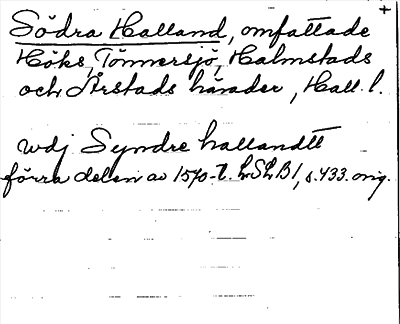 Södra Halland, omfattade
Höks, Tönnersjö, Halmstads
och Årstads härader, Hall. l.
wdj Syndre hallandtt
förra delen av 1570-t. LSLB 1, s. 433. orig.